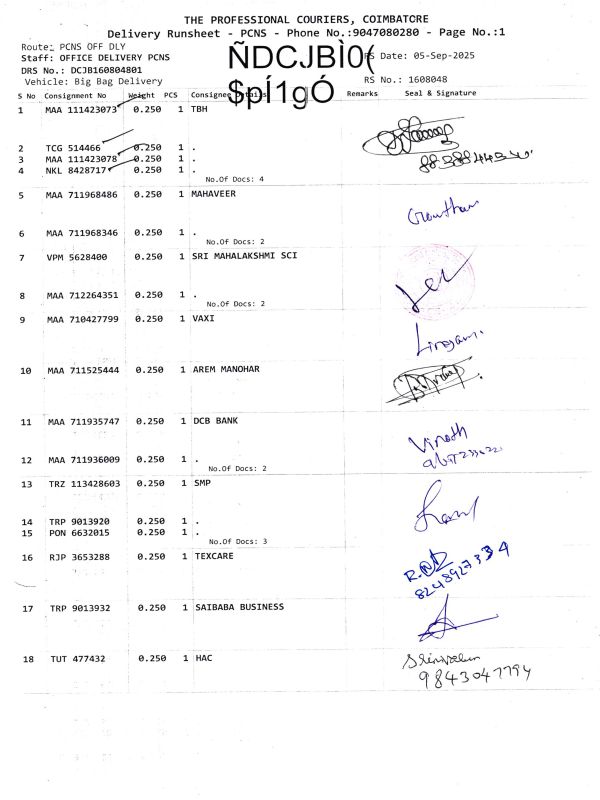 THE PROFESSIONAL COURIERS, COIMBATORE
Delivery Runsheet - PCNS - Phone No.:9047080280 - Page No.:1
Route: PCNS OFF DLY
Staff: OFFICE DELIVERY PCNS
DRS No.: DCJB160804801
Vehicle: Big Bag Delivery
ÑDCJBÌ0(
$pÍ1gÓ
RS Date: 05-Sep-2025
RS No.: 1608048
S No Consignment No Weight PCS Consignee Details Remarks Seal & Signature
1 MAA 111423073 0.250 1 TBH
2 TCG 514466 0.250 1 .
3 MAA 111423078 0.250 1 .
4 NKL 8428717 0.250 1 .
No.Of Docs: 4
5 MAA 711968486 0.250 1 MAHAVEER
Gowtham
6 MAA 711968346 0.250 1 .
No.Of Docs: 2
7 VPM 5628400 0.250 1 SRI MAHALAKSHMI SCI
8 MAA 712264351 0.250 1 .
No.Of Docs: 2
9 MAA 710427799 0.250 1 VAXI
10 MAA 711525444 0.250 1 AREM MANOHAR
11 MAA 711935747 0.250 1 DCB BANK
Vinoth
12 MAA 711936009 0.250 1 .
No.Of Docs: 2
13 TRZ 113428603 0.250 1 SMP
14 TRP 9013920 0.250 1 .
15 PON 6632015 0.250 1 .
No.Of Docs: 3
16 RJP 3653288 0.250 1 TEXCARE
8248927334
17 TRP 9013932 0.250 1 SAIBABA BUSINESS
18 TUT 477432 0.250 1 HAC
9843047794